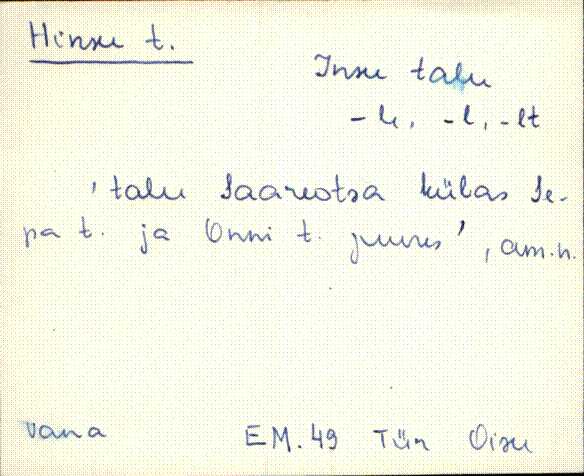 Hinsu t.
Insu talu
-le, -l, -lt
'talu Saareotsa külas Se-
pa t. ja Onni t. juures', am.n.
vana EM.49 Tür Oisu